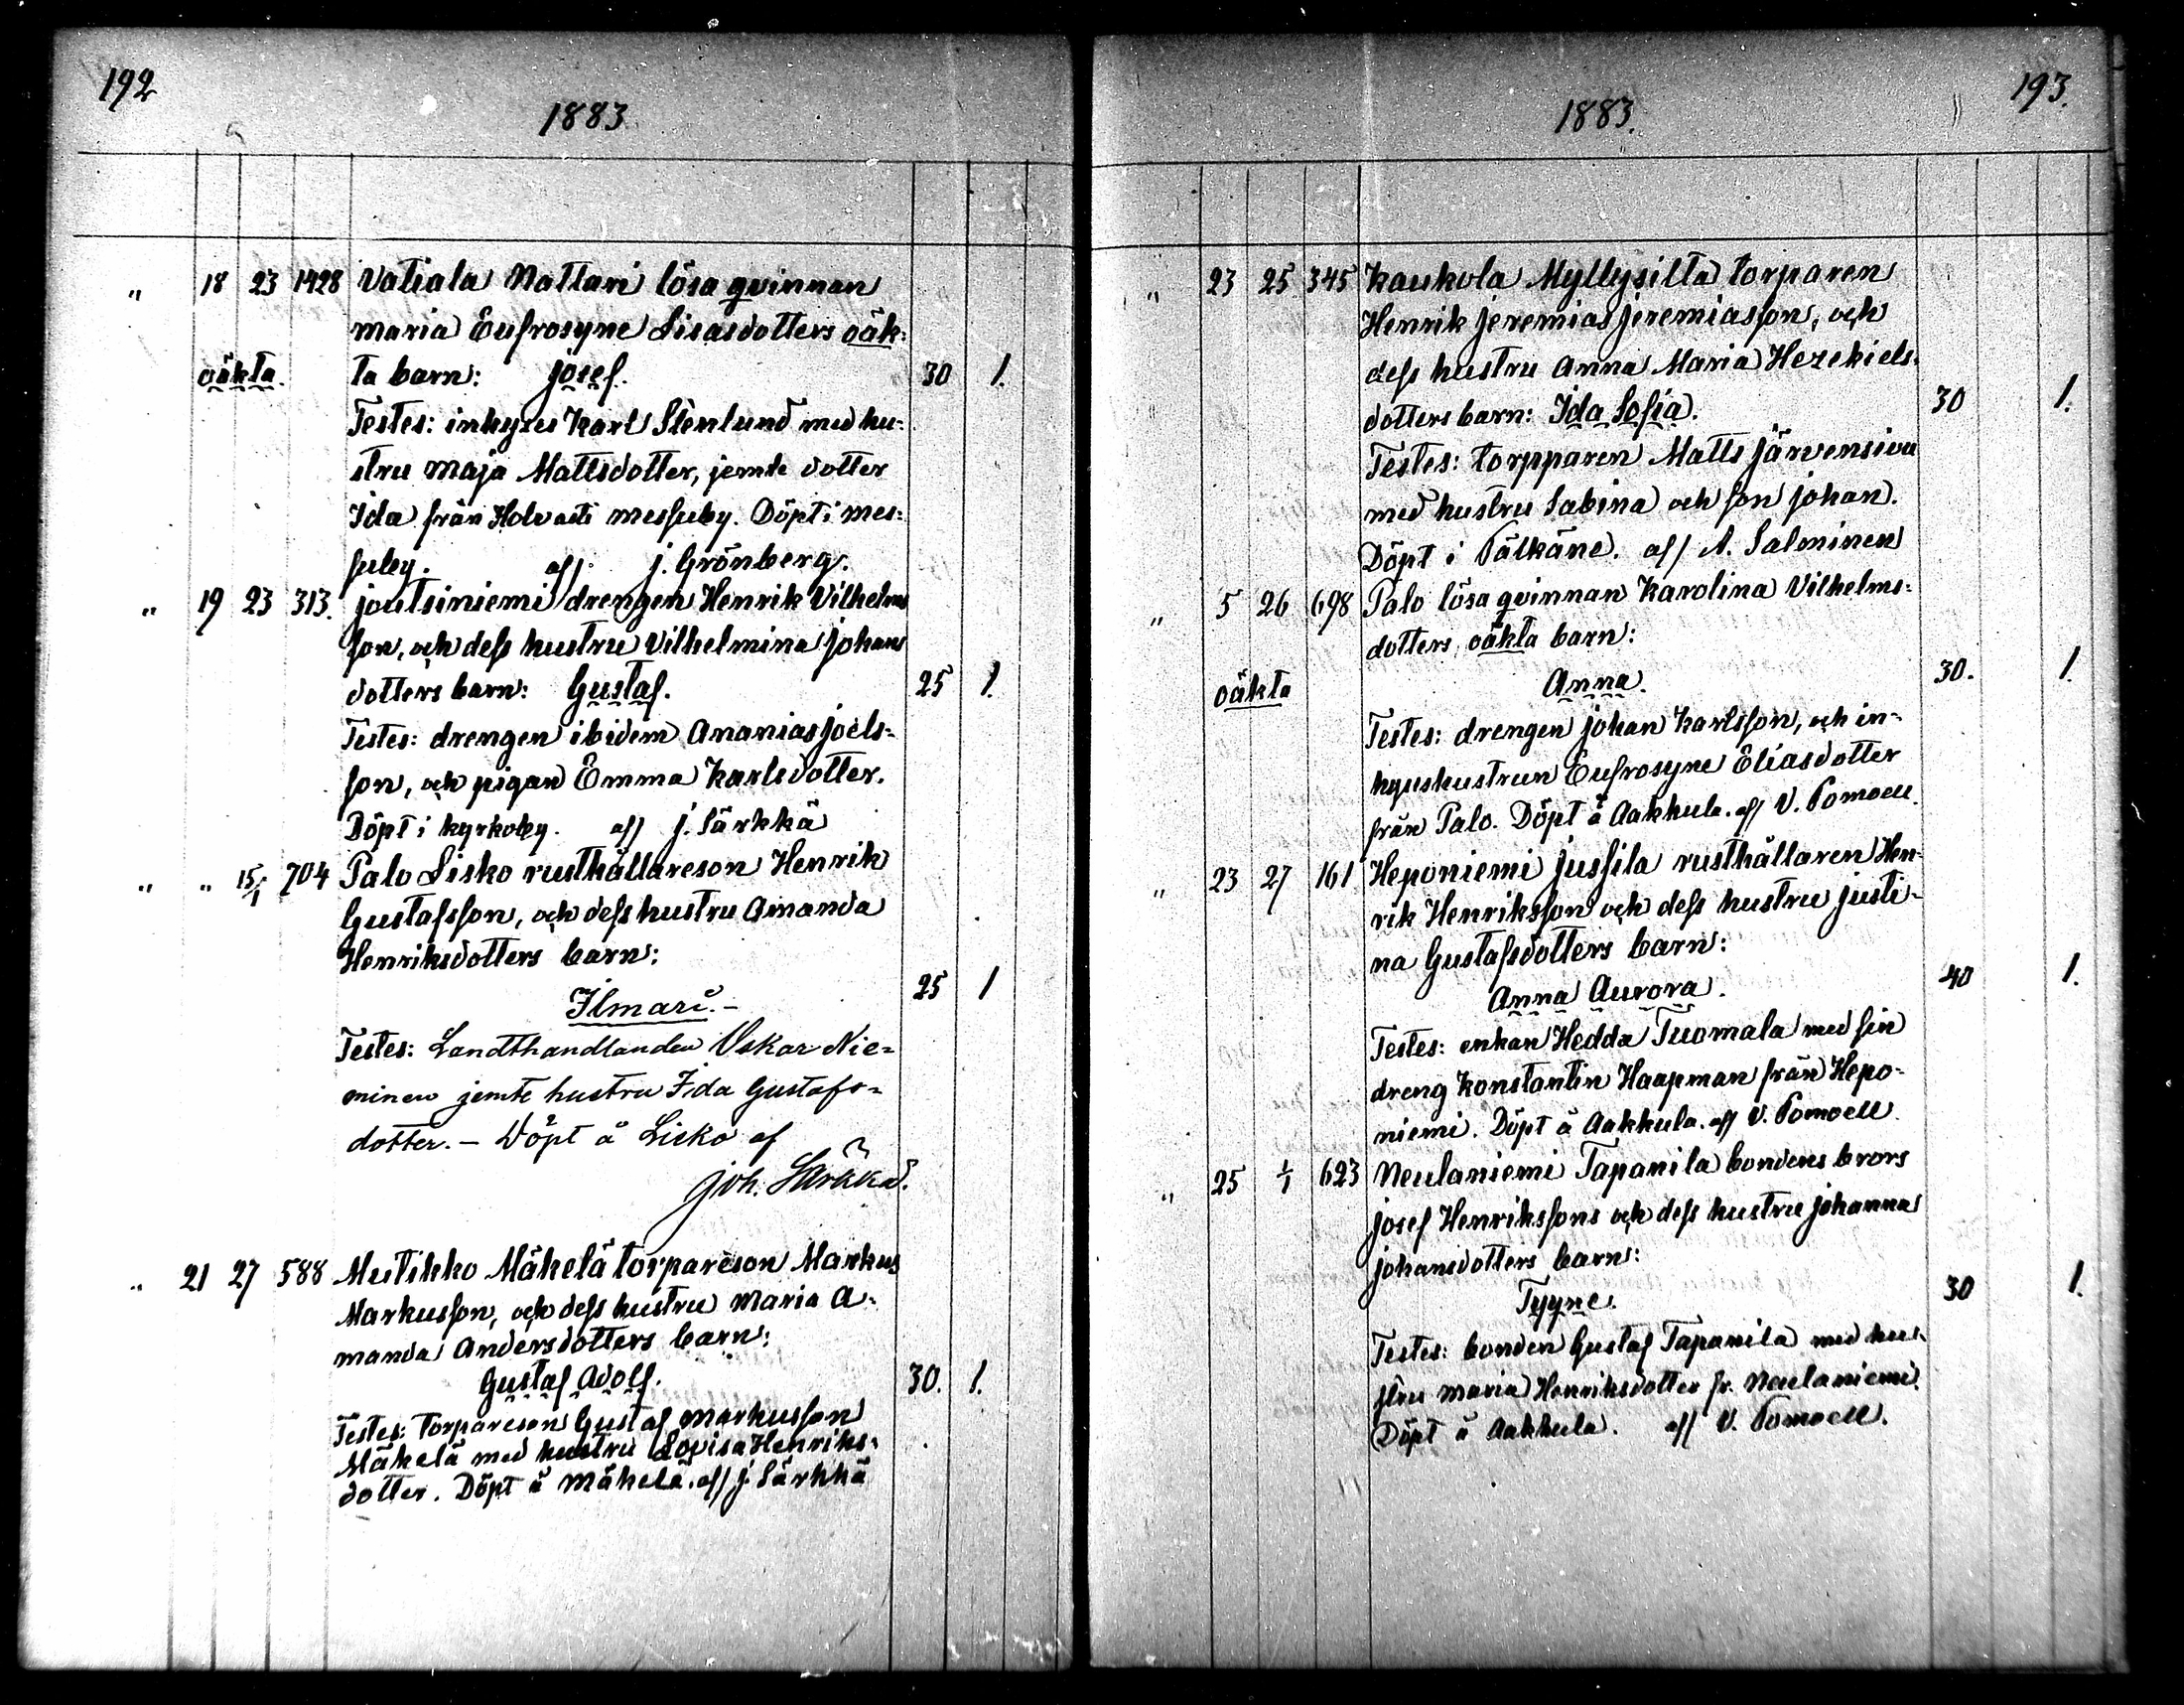 192
1883
" 18 23 1428 Vatiala Nattari lösa qvinnan
maria Eufrosyne Lisasdotters oäk-
oäkta. ta barn: Josef. 30 1.
Testes: inhyses Karl Stenlund med hu-
stru Maja Mattsdotter, jemte dotter
Ida från Holvasti messuby. Döpt i mes-
suby. af J. Grönberg.
" 19 23 313. Joutsiniemi drengen Henrik Vilhelms
son, och dess hustru Vilhelmina Johans
dotters barn: Gustaf. 25 1
Testes: drengen ibidem Ananias Joels-
son, och pigan Emma Karlsdotter.
Döpt i kyrkoby. af J. Särkkä
" " 15/1 704 Palo Lisko rusthållareson Henrik
Gustafsson, och dess hustru Amanda
Henriksdotters barn:
Ilmari. – 25 1
Testes: Landthandlanden Oskar Nie-
minen jemte hustru Ida Gustafs-
dotter. – Döpt å Lisko af
Joh. Särkkä.
" 21 27 588 Mutikko Mäkelä torpareson Markus
Markusson, och dess hustru Maria A-
manda Andersdotters barn:
Gustaf Adolf. 30. 1.
Testes: torpareson Gustaf Markusson
Mäkelä med hustru Lovisa Henriks-
dotter. Döpt å Mäkelä. af J. Särkkä
193.
1883.
" 23 25 345 Kaukola Myllysilta torparen
Henrik Jeremias Jeremiasson, och
dess hustru Anna Maria Hezekiels-
dotters barn: Ida Sofia. 30 1.
Testes: torpparen Matts Järvensivu
med hustru Sabina och son Johan.
Döpt i Pälkäne. af A. Salminen
" 5 26 698 Palo lösa qvinnan Karolina Vilhelms-
dotters oäkta barn:
oäkta Anna. 30. 1.
Testes: drengen Johan Karlsson, och in-
hyseshustrun Eufrosyne Eliasdotter
från Palo. Döpt å Aakkula. af V. Pomoell.
" 23 27 161 Heponiemi Jussila rusthållaren Hen-
rik Henriksson och dess hustru Justi-
na Gustafsdotters barn:
Anna Aurora. 40 1.
Testes: enkan Hedda Tuomala med sin
dreng Konstantin Haapman från Hepo-
niemi. Döpt å Aakkula. af V. Pomoell
" 25 1/1 623 Neulaniemi Tapanila bondens brors
Josef Henrikssons och dess hustru Johanna
Johansdotters barn:
Tyyne. 30 1.
Testes: bonden Gustaf Tapanila med hu-
stru Maria Henriksdotter fr. Neulaniemi.
Döpt å Aakkula. af V. Pomoell.